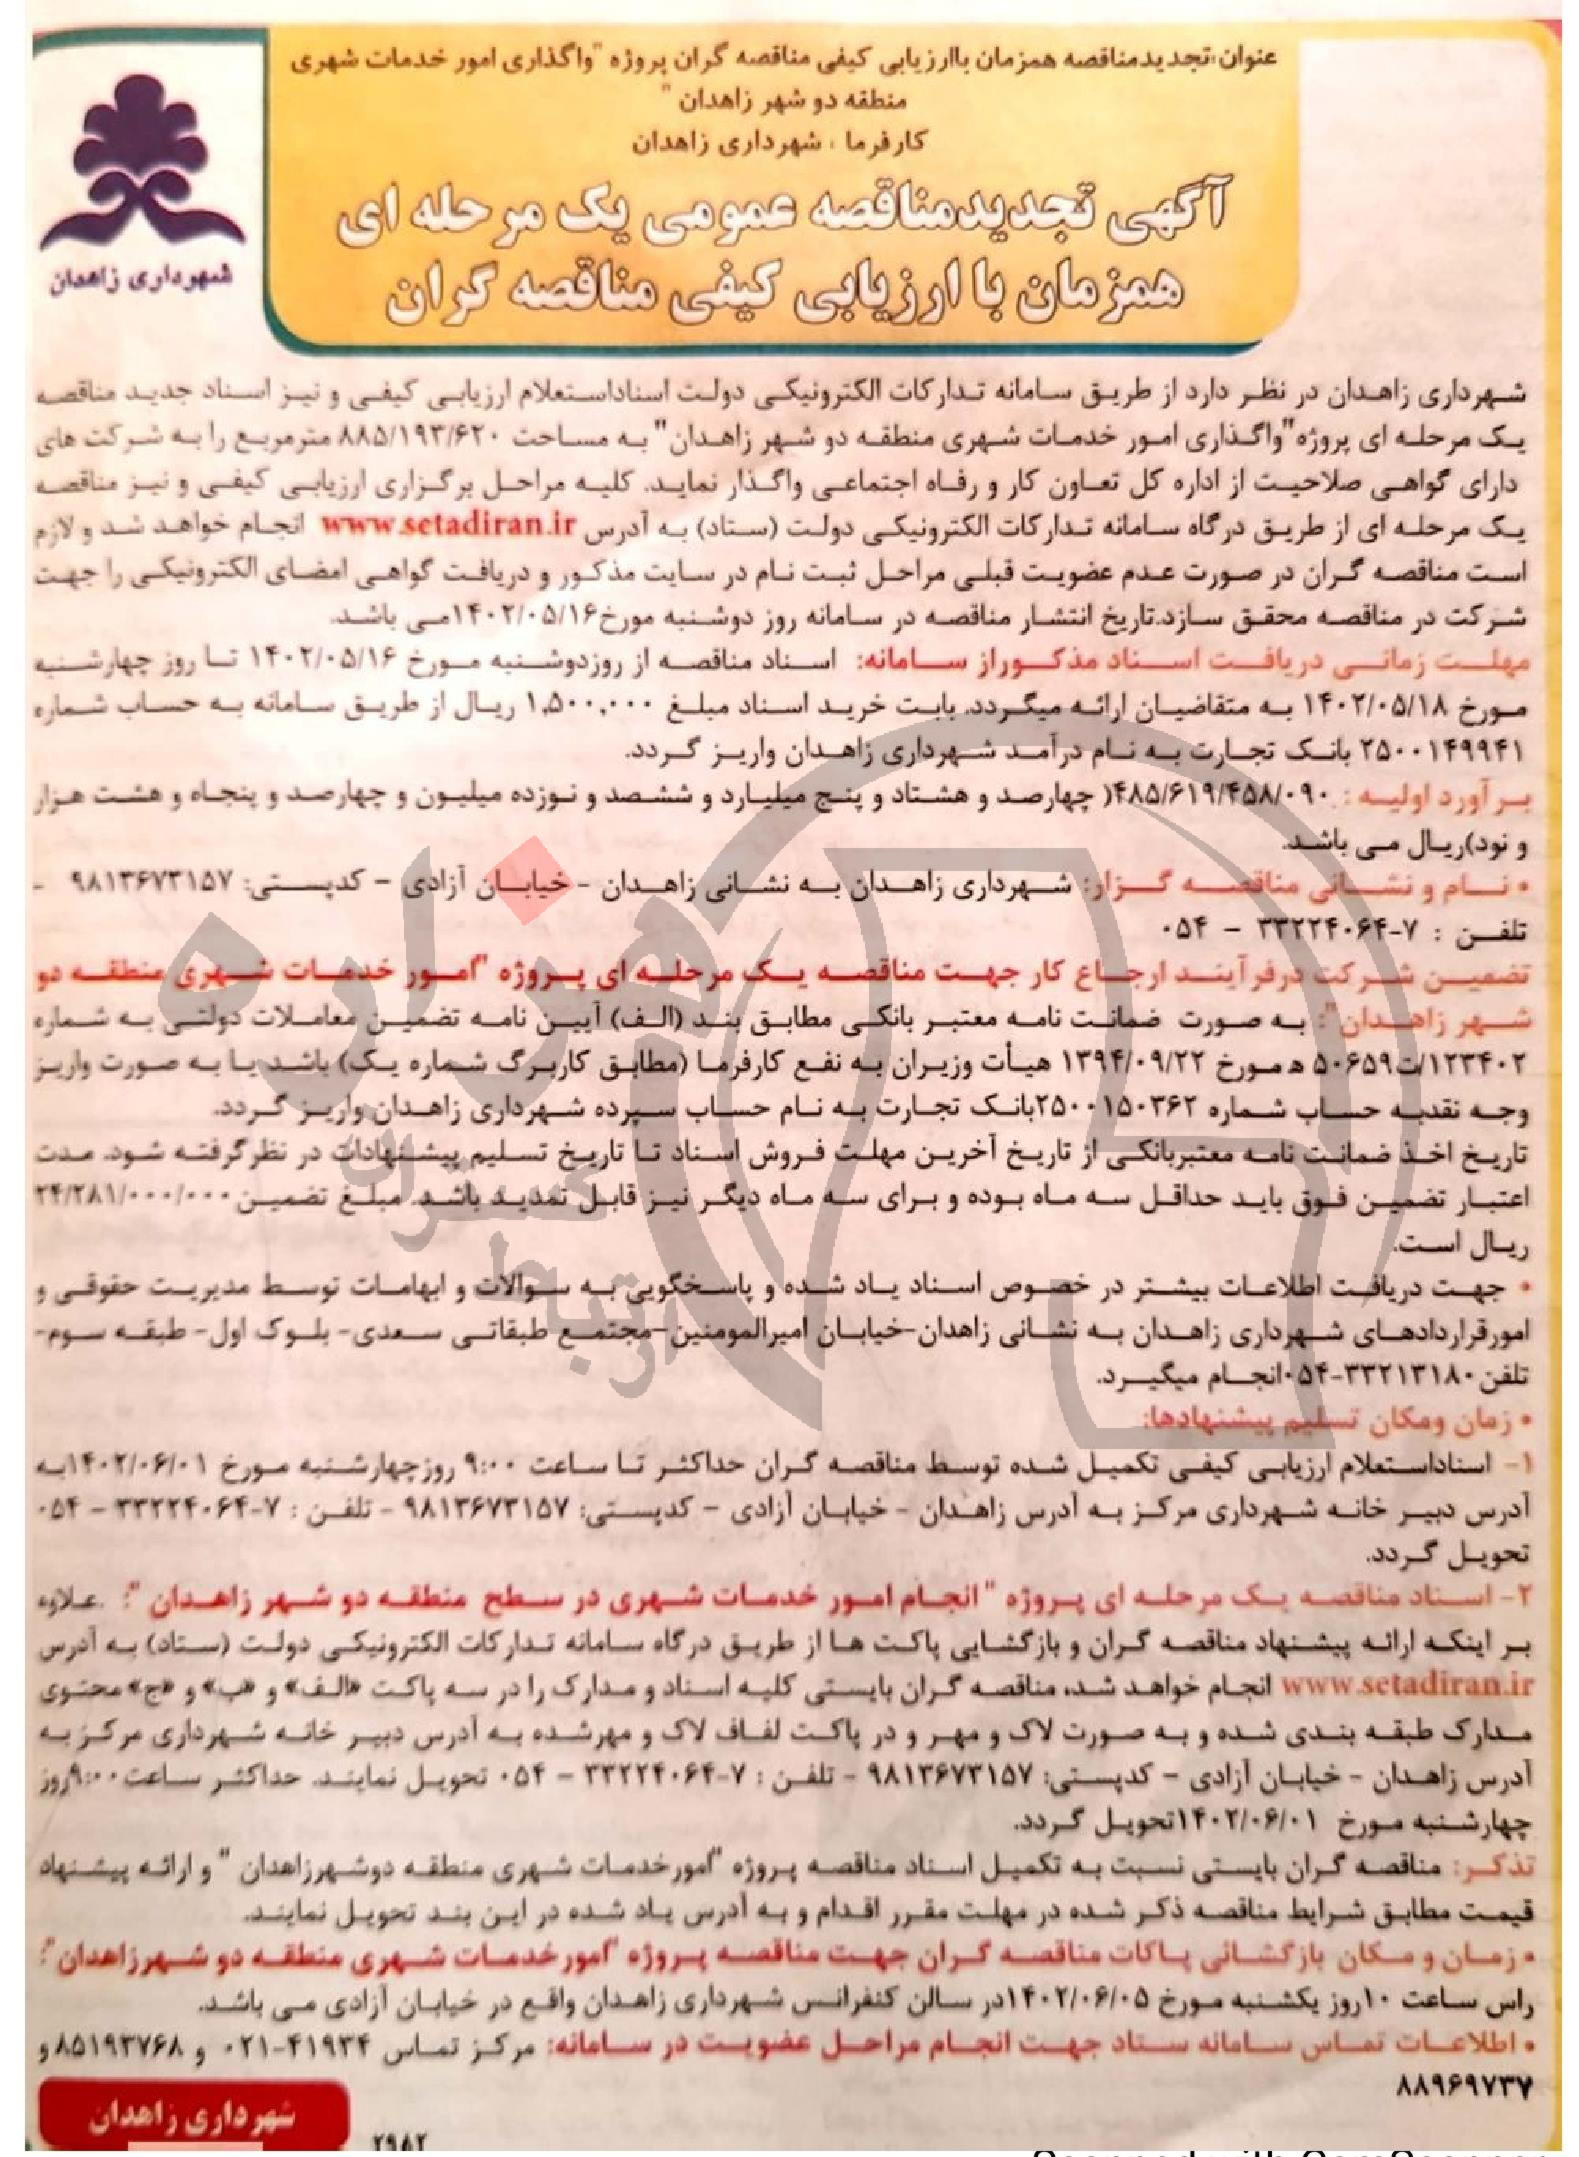 عنوان:تجدیدمناقصه همزمان باارزیابی کیفی مناقصه گران پروژه "واگذاری امور خدمات شهری
منطقه دو شهر زاهدان "
کارفرما : شهرداری زاهدان
آگهی تجدیدمناقصه عمومی یک مرحله ای
همزمان با ارزیابی کیفی مناقصه گران
شهرداری زاهدان
شهرداری زاهدان در نظر دارد از طریق سامانه تدارکات الکترونیکی دولت اسناداستعلام ارزیابی کیفی و نیز اسناد جدید مناقصه
یک مرحله ای پروژه"واگذاری امور خدمات شهری منطقه دو شهر زاهدان" به مساحت ۸۸۵/۱۹۳/۶۲۰ مترمربع را به شرکت های
دارای گواهی صلاحیت از اداره کل تعاون کار و رفاه اجتماعی واگذار نماید. کلیه مراحل برگزاری ارزیابی کیفی و نیز مناقصه
یک مرحله ای از طریق درگاه سامانه تدارکات الکترونیکی دولت (ستاد) به آدرس www.setadiran.ir انجام خواهد شد و لازم
است مناقصه گران در صورت عدم عضویت قبلی مراحل ثبت نام در سایت مذکور و دریافت گواهی امضای الکترونیکی را جهت
شرکت در مناقصه محقق سازد.تاریخ انتشار مناقصه در سامانه روز دوشنبه مورخ۱۴۰۲/۰۵/۱۶می باشد.
مهلت زمانی دریافت اسناد مذکوراز سامانه: اسناد مناقصه از روزدوشنبه مورخ ۱۴۰۲/۰۵/۱۶ تا روز چهارشنبه
مورخ ۱۴۰۲/۰۵/۱۸ به متقاضیان ارائه میگردد. بابت خرید اسناد مبلغ ۱,۵۰۰,۰۰۰ ریال از طریق سامانه به حساب شماره
۲۵۰۰۱۴۹۹۴۱ بانک تجارت به نام درآمد شهرداری زاهدان واریز گردد.
برآورد اولیه : ۴۸۵/۶۱۹/۴۵۸/۰۹۰( چهارصد و هشتاد و پنج میلیارد و ششصد و نوزده میلیون و چهارصد و پنجاه و هشت هزار
و نود)ریال می باشد.
• نام و نشانی مناقصه گزار: شهرداری زاهدان به نشانی زاهدان - خیابان آزادی – کدپستی: ۹۸۱۳۶۷۳۱۵۷ -
تلفن : ۷-۳۳۲۲۴۰۶۴ – ۰۵۴
تضمین شرکت درفرآیند ارجاع کار جهت مناقصه یک مرحله ای پروژه "امور خدمات شهری منطقه دو
شهر زاهدان": به صورت ضمانت نامه معتبر بانکی مطابق بند (الف) آیین نامه تضمین معاملات دولتی به شماره
۱۲۳۴۰۲/ت۵۰۶۵۹ ه مورخ ۱۳۹۴/۰۹/۲۲ هیأت وزیران به نفع کارفرما (مطابق کاربرگ شماره یک) باشد یا به صورت واریز
وجه نقدبه حساب شماره ۲۵۰۰۱۵۰۳۶۲بانک تجارت به نام حساب سپرده شهرداری زاهدان واریز گردد.
تاریخ اخذ ضمانت نامه معتبربانکی از تاریخ آخرین مهلت فروش اسناد تا تاریخ تسلیم پیشنهادات در نظرگرفته شود. مدت
اعتبار تضمین فوق باید حداقل سه ماه بوده و برای سه ماه دیگر نیز قابل تمدید باشد. مبلغ تضمین۲۴/۲۸۱/۰۰۰/۰۰۰
ریال است.
• جهت دریافت اطلاعات بیشتر در خصوص اسناد یاد شده و پاسخگویی به سوالات و ابهامات توسط مدیریت حقوقی و
امورقراردادهای شهرداری زاهدان به نشانی زاهدان-خیابان امیرالمومنین-مجتمع طبقاتی سعدی- بلوک اول- طبقه سوم-
تلفن۳۳۲۱۳۱۸۰-۰۵۴انجام میگیرد.
• زمان ومکان تسلیم پیشنهادها:
۱- اسناداستعلام ارزیابی کیفی تکمیل شده توسط مناقصه گران حداکثر تا ساعت ۹:۰۰ روزچهارشنبه مورخ ۱۴۰۲/۰۶/۰۱به
آدرس دبیر خانه شهرداری مرکز به آدرس زاهدان - خیابان آزادی – کدپستی: ۹۸۱۳۶۷۳۱۵۷ - تلفن : ۷-۳۳۲۲۴۰۶۴ – ۰۵۴
تحویل گردد.
۲- اسناد مناقصه یک مرحله ای پروژه " انجام امور خدمات شهری در سطح منطقه دو شهر زاهدان ": .علاوه
بر اینکه ارائه پیشنهاد مناقصه گران و بازگشایی پاکت ها از طریق درگاه سامانه تدارکات الکترونیکی دولت (ستاد) به آدرس
www.setadiran.ir انجام خواهد شد، مناقصه گران بایستی کلیه اسناد و مدارک را در سه پاکت «الف» و «ب» و «ج» محتوی
مدارک طبقه بندی شده و به صورت لاک و مهر و در پاکت لفاف لاک و مهرشده به آدرس دبیر خانه شهرداری مرکز به
آدرس زاهدان - خیابان آزادی – کدپستی: ۹۸۱۳۶۷۳۱۵۷ - تلفن : ۷-۳۳۲۲۴۰۶۴ – ۰۵۴ تحویل نمایند. حداکثر ساعت۹:۰۰روز
چهارشنبه مورخ ۱۴۰۲/۰۶/۰۱تحویل گردد.
تذکر: مناقصه گران بایستی نسبت به تکمیل اسناد مناقصه پروژه "امورخدمات شهری منطقه دوشهرزاهدان " و ارائه پیشنهاد
قیمت مطابق شرایط مناقصه ذکر شده در مهلت مقرر اقدام و به آدرس یاد شده در این بند تحویل نمایند.
• زمان و مکان بازگشائی پاکات مناقصه گران جهت مناقصه پروژه "امورخدمات شهری منطقه دو شهرزاهدان":
راس ساعت ۱۰روز یکشنبه مورخ ۱۴۰۲/۰۶/۰۵در سالن کنفرانس شهرداری زاهدان واقع در خیابان آزادی می باشد.
• اطلاعات تماس سامانه ستاد جهت انجام مراحل عضویت در سامانه: مرکز تماس ۴۱۹۳۴-۰۲۱ و ۸۵۱۹۳۷۶۸ و
۸۸۹۶۹۷۳۷
شهرداری زاهدان
۲۹۸۲